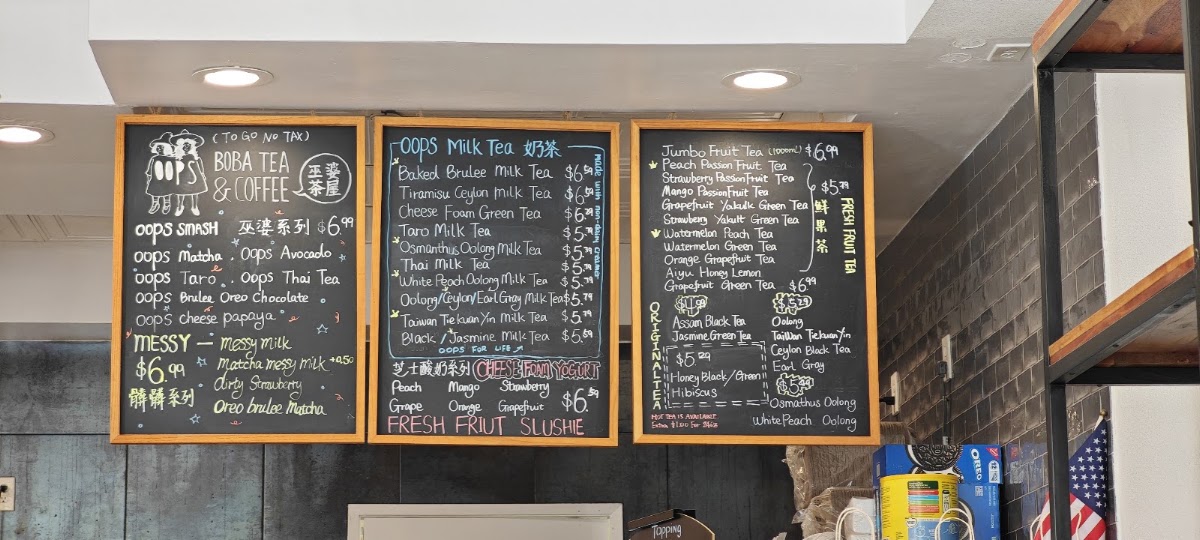 (TO GO NO TAX)
OOPS
BOBA TEA
& COFFEE
巫婆
茶屋
OOPS SMASH 巫婆系列 $6.99
OOPS Matcha . OOPS Avocado
OOPS Taro . OOPS Thai Tea
OOPS Brulee Oreo Chocolate
OOPS cheese papaya
MESSY — messy milk
$6.99 Matcha messy milk +0.50
dirty Strawberry
髒髒系列
Oreo brulee Matcha
OOPS Milk Tea 奶茶
Baked Brulee Milk Tea
Tiramisu Ceylon Milk Tea
Cheese Foam Green Tea
Taro Milk Tea $5.79
Osmanthus Oolong Milk Tea $5.79
Thai Milk Tea $5.79
White Peach Oolong Milk Tea $5.79
Oolong/Ceylon/Earl Gray Milk Tea $5.79
Taiwan TieKuanYin Milk Tea $5.79
Black/Jasmine Milk Tea
OOPS FOR LIFE
made with non-dairy creamer
芝士酸奶系列 CHEESE FOAM YOGURT
Peach Mango Strawberry
Grape Orange Grapefruit
FRESH FRIUT SLUSHIE
Jumbo Fruit Tea (1000ML) $6.99
Peach Passion Fruit Tea
Strawberry Passion Fruit Tea
Mango Passion Fruit Tea
Grapefruit Yakult Green Tea
Strawberry Yakult Green Tea
Watermelon Peach Tea
Watermelon Green Tea
Orange Grapefruit Tea
Aiyu Honey Lemon
Grapefruit Green Tea $6.99
$5.79
鲜果茶
FRESH FRUIT TEA
ORIGINAL TEA
$4.99
Assam Black Tea
Jasmine Green Tea
$5.29
Honey Black/Green
Hibiscus
$5.29
Oolong
Taiwan Tiekuan Yin
Ceylon Black Tea
Earl Gray
Osmathus Oolong
White Peach Oolong
HOT TEA IS AVAILABLE
Extra $1.00 For
Topping
OREO
OREO